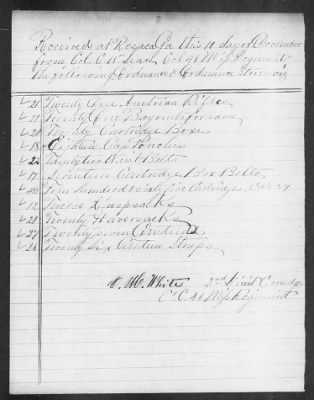 Received at Resaca Ga this 10 day of December
from Col. C. W. Sears, Col 46 Miss Regiment
the following Ordnance & Ordnance Stores viz
21 Twenty One Austrian Rifles
21 Twenty One Bayonets for same
20 Twenty Cartridge Boxes
18 Eighteen Cap Pouches
22 Twenty two Waist Belts
17 Seventeen Cartridge Box Belts
Four hundred twenty five Cartridges, Cal.
12 Twelve Knapsacks
20 Twenty Haversacks
27 Twenty seven Canteens
26 Twenty Six Canteen Straps
White 2nd Lieut Comdg
Co C. 46 Miss Regiment